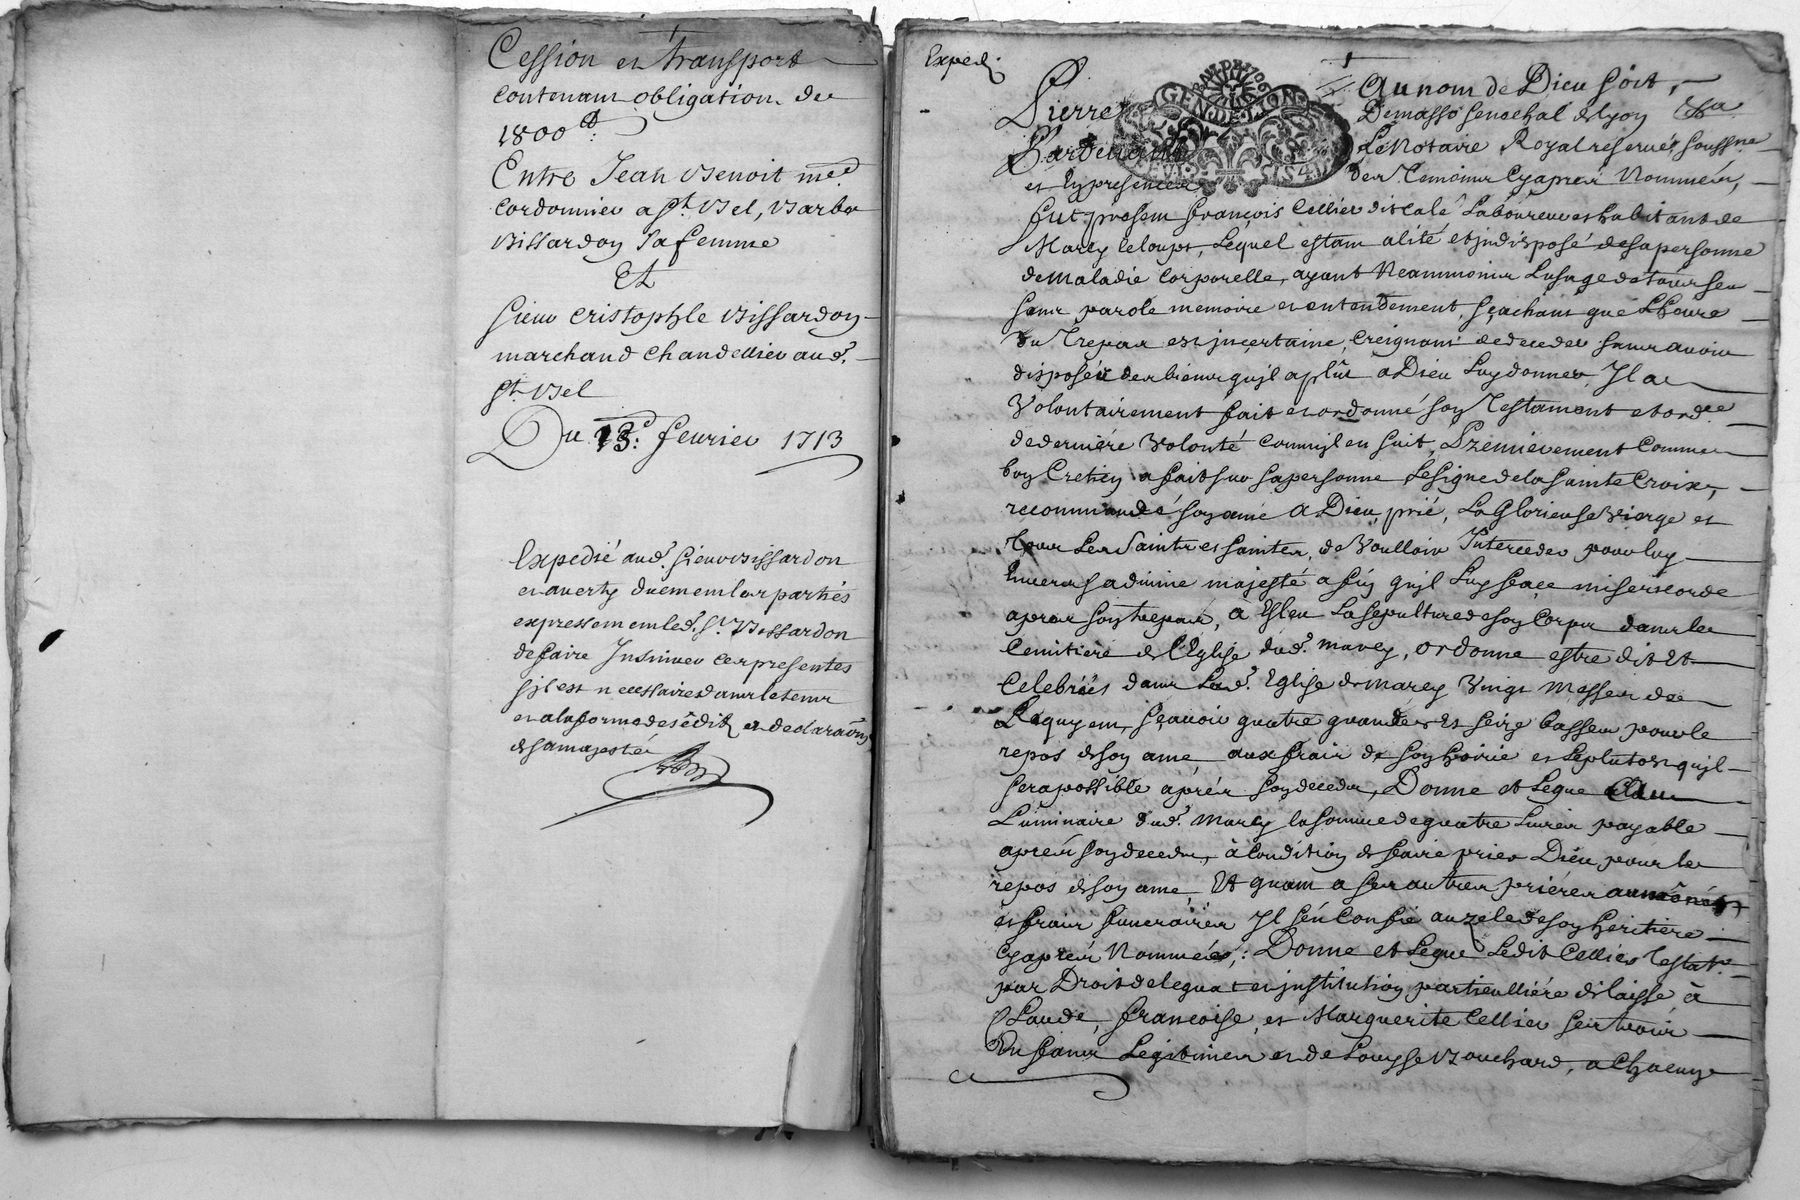 Cession et transport
contenant obligation de
1800 lt
Entre Jean Benoit md
cordonnier a St. Bel, Barbe
Bissardon sa femme
Et
sieur Cristophle Bissardon
marchand chandellier aud.
St. Bel
Du 13e: feurier 1713
Expedié aud. sieur Bissardon
et auerty duement les partiés
expressement led. sr. Bissardon
de faire Insinuer ces presentes
s'il est necessaire dans le tems
et a la forme des édits et declaraõns
de sa majesté
Exped.
Au nom de Dieu soit,
Pierre Demasso senechal de Lyon
Le Notaire Royal reserué soussne
et En presence des Temoins Cyaprés Nommés,
fut present François Cellier dit Calé Laboureur et habitant de
Marcy le loup, Lequel estant alité et jndisposé de sa personne
de maladie Corporelle, ayant Neanmoins Lusage de tous ses
sens parole memoire et entendement, sçachant que Lheure
du Trepas est jncertaine, Creignant de deceder sans auoir
disposér des biens qu'jl a plût a Dieu Luy donner, Jl a
Volontairement fait et ordonné son Testament et ordce
de derniére Volonté comm'jl en suit, Premiérement Comme
bon Cretien a fait sur sa personne Le signe de la Sainte Croix,
recommandé son ame a Dieu, prié, La Glorieuse Vierge et
Tous Les Saints et saintes, de Voulloir Interceder pour luy
Enuers sa diuine majesté afin qu'jl Luy fasse misericorde
apres son trepas, a Esleu La sepulture de son Corps dans le
Cemitiére de L'Eglise dud. marcy, ordonne estre dit Et
Celebréés dans Lad. Eglise de marcy Vingt Messes de
Requyem, sçauoir quatre grandes et seize basses pour le
repos de son ame aux frais de son hoirie et Le plutost qu'jl
sera possible aprés son decedz, Donne et Legue au
Luminaire dud. Marcy la somme de quatre Liures payable
aprés son decedz, à Condition de faire prier Dieu pour le
repos de son ame, Et quant a ses autres priéres aumônés
et frais funeraires Jl s'en Confie au zele de son heritiére
Cyaprés Nommée,: Donne et Legue Ledit Cellier Testatr.
par Droit de legua et jnstitution particulliére délaisse à
Claude, Francoise, et Marguerite Cellier ses trois
Enfans Legitimes et de Louyse Bouchard, a Chacun